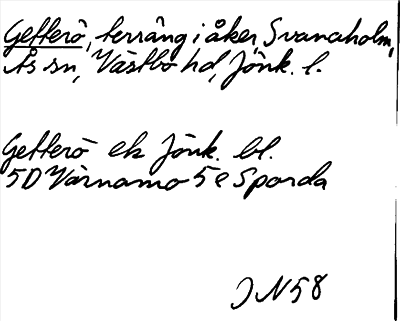 Getterö, terräng i åker, Svanaholm,
Ås sn, Västbo hd, Jönk. l.
Getterö ek Jönk. bl.
5D Värnamo 5e Sporda
JN58